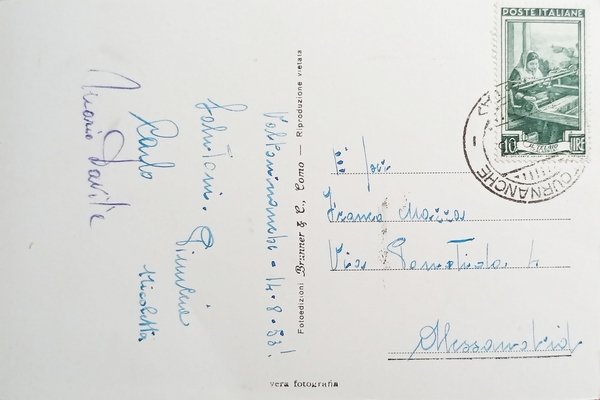 POSTE ITALIANE
10 LIRE
IL TELAIO
CURNANCHE
Valtournanche - 14.8.53!
Salutoni.
Pinuccia
Carlo
Nicoletta
Mario
Fotoedizioni Brunner & C., Como — Riproduzione vietata
Franca Mazza
Via 4
Alessandria
vera fotografia